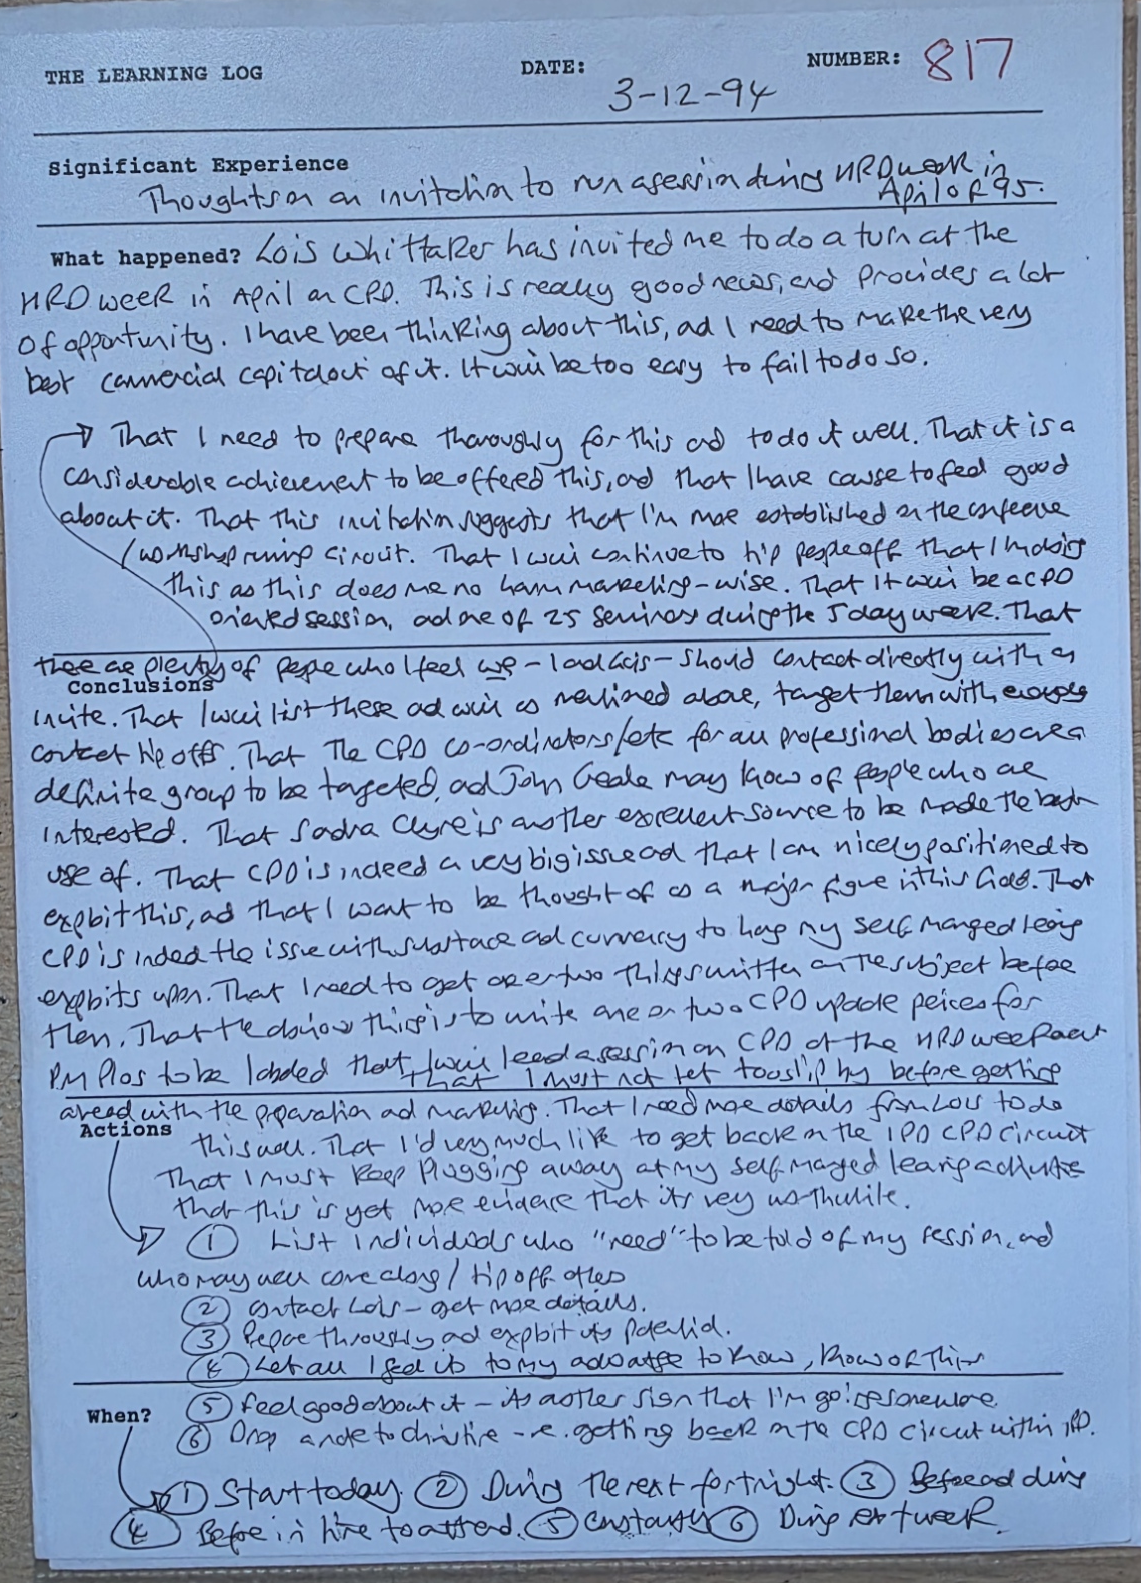 THE LEARNING LOG DATE: 3-12-94 NUMBER: 817
Significant Experience
Thoughts on an invitation to run a session during HRD week in
April of 95.
What happened? Lois Whittaker has invited me to do a turn at the
HRD week in April on CPD. This is really good news, and provides a lot
of opportunity. I have been thinking about this, ad I need to make the very
best commercial capital out of it. It will be too easy to fail to do so.
That I need to prepare thoroughly for this ad to do it well. That it is a
considerable achievement to be offered this, ad that I have cause to feel good
about it. That this invitation suggests that I'm more established on the conference
/workshop running circuit. That I will continue to tip people off that I'm doing
this as this does me no harm marketing-wise. That it will be a CPD
oriented session, ad one of 25 seminars during the 5 day week. That
there are plenty of people who I feel we - I ad Lois - should contact directly with an
Conclusions
invite. That I will list these ad will as mentioned above, target them with
contact tip offs. That the CPD co-ordinators/etc for all professional bodies are a
definite group to be targeted, ad John Geale may know of people who are
interested. That Sadra Clyne is another excellent source to be made the best
use of. That CPD is indeed a very big issue ad that I am nicely positioned to
exploit this, ad that I want to be thought of as a major figure in this field. That
CPD is indeed the issue with substance ad currency to hang my self managed learning
exploits upon. That I need to get one or two things written on the subject before
then. That the obvious thing is to write one or two CPD update peices for
PM Plus to be labeled that I will lead a session on CPD at the HRD week
That I must not let too slip by before getting
ahead with the preparation ad marketing. That I need more details from Lois to do
Actions
this well. That I'd very much like to get back on the IPD CPD circuit
That I must keep plugging away at my self managed learning
that this is yet more evidence that its very worthwhile.
① List individuals who "need" to be told of my session, ad
who may well come along / tip off others
② Contact Lois - get more details.
③ Prepare thoroughly ad exploit its potential.
④ Let all I feel it is to my advantage to know, know of this
⑤ Feel good about it - its another sign that I'm going somewhere.
When?
⑥ Drop a note to - re. getting back on the CPD circuit within IPD.
① Start today. ② During the next fortnight. ③ Before ad during
④ Before in time to attend. ⑤ Constantly ⑥ During next week.